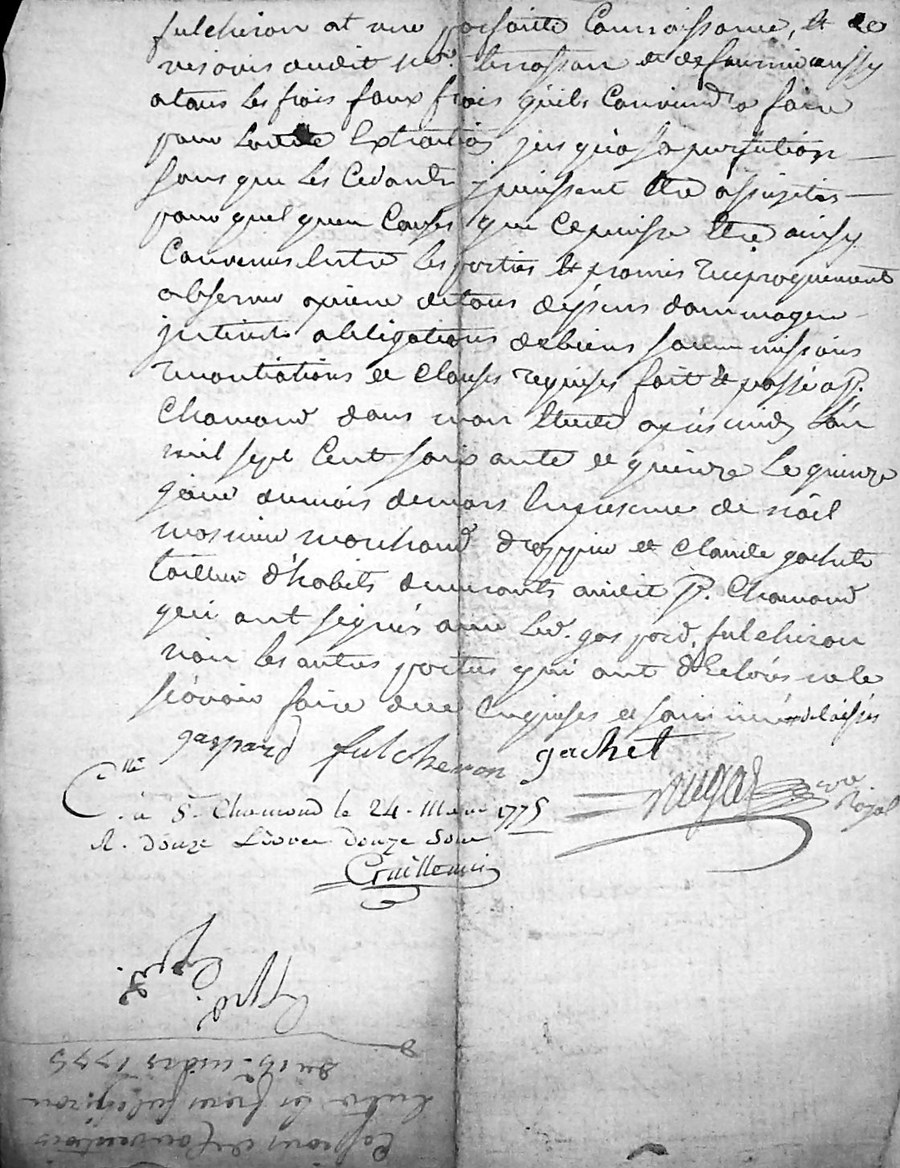 fulchiron at une parfaite Connoissance, et de
audit terrasson et de fournir aussy
atous les frois faux frois quils Conviendra faire
pour Extraction jusqu'a sa perfution
sans que les Cedants puissent être assujetis
pour quelquen Causes que ce puisse être ainsy
Convenus Entre les parties Et promis reciproquement
observer apeine detous depens dommagens
jnterets obligations debiens soummissions
renontiations et Clauses requises fait et passé a St.
Chamond dans mon Etude l'an
mil sept Cent soixante et quinze Le quinze
jour dumois demars Enpresence de noël
marchand et Claude gachet
tailleur d'habits demeurants audit St. Chamond
qui ont signés avec Led. gaspard fulchiron
non les autres parties qui ont déclarés ne le
sçavoir faire dee Enquises et
gaspard fulcheron gachet
Clle. à St. Chamond le 24. Mars 1775
R. douze Livres douze Sous
royal
Du 15 mars 1775
Entre les freres fulchiron
Cession et Conventions